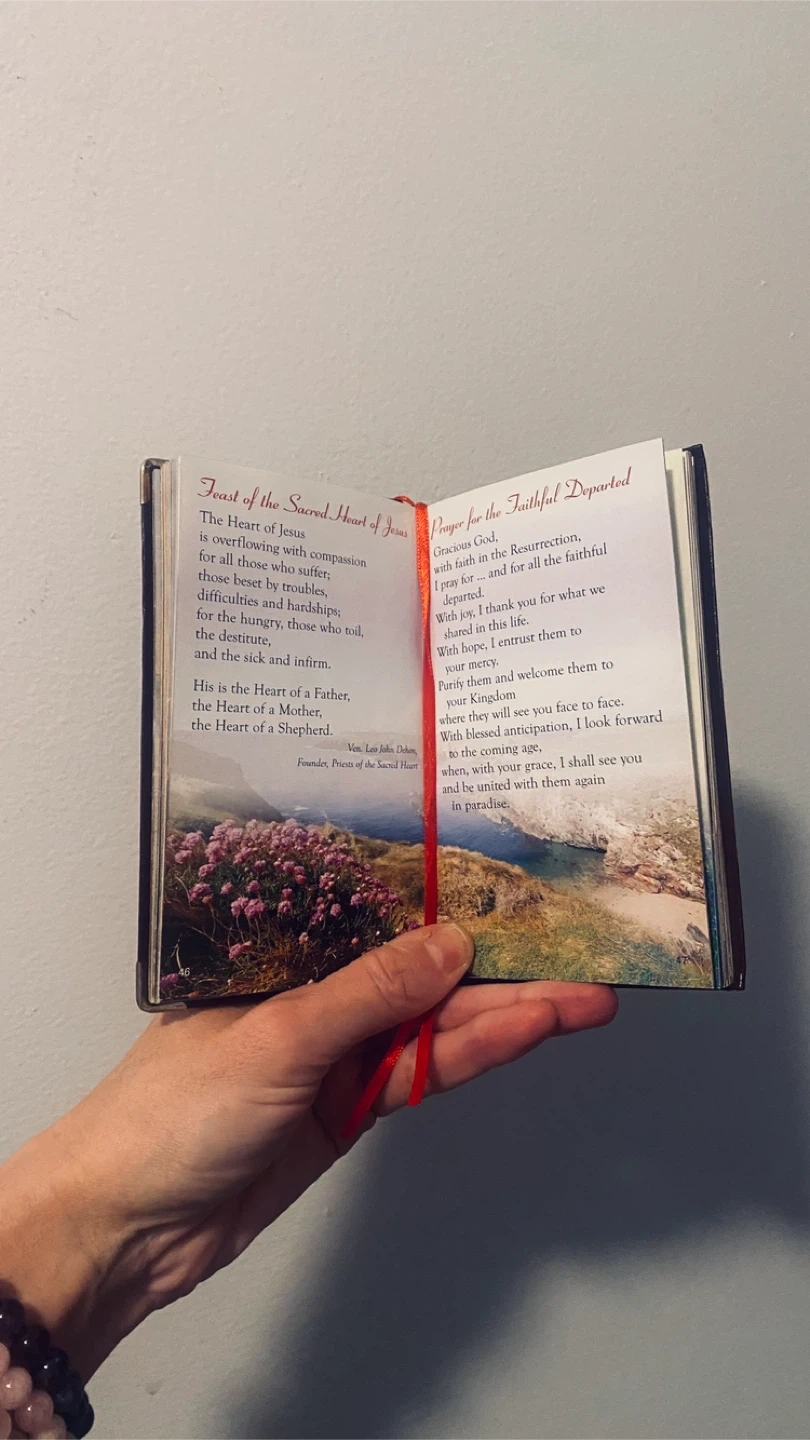 Feast of the Sacred Heart of Jesus
The Heart of Jesus
is overflowing with compassion
for all those who suffer;
those beset by troubles,
difficulties and hardships;
for the hungry, those who toil,
the destitute,
and the sick and infirm.
His is the Heart of a Father,
the Heart of a Mother,
the Heart of a Shepherd.
Ven. Leo John Dehon,
Founder, Priests of the Sacred Heart
46
Prayer for the Faithful Departed
Gracious God,
with faith in the Resurrection,
I pray for ... and for all the faithful
departed.
With joy, I thank you for what we
shared in this life.
With hope, I entrust them to
your mercy.
Purify them and welcome them to
your Kingdom
where they will see you face to face.
With blessed anticipation, I look forward
to the coming age,
when, with your grace, I shall see you
and be united with them again
in paradise.
47